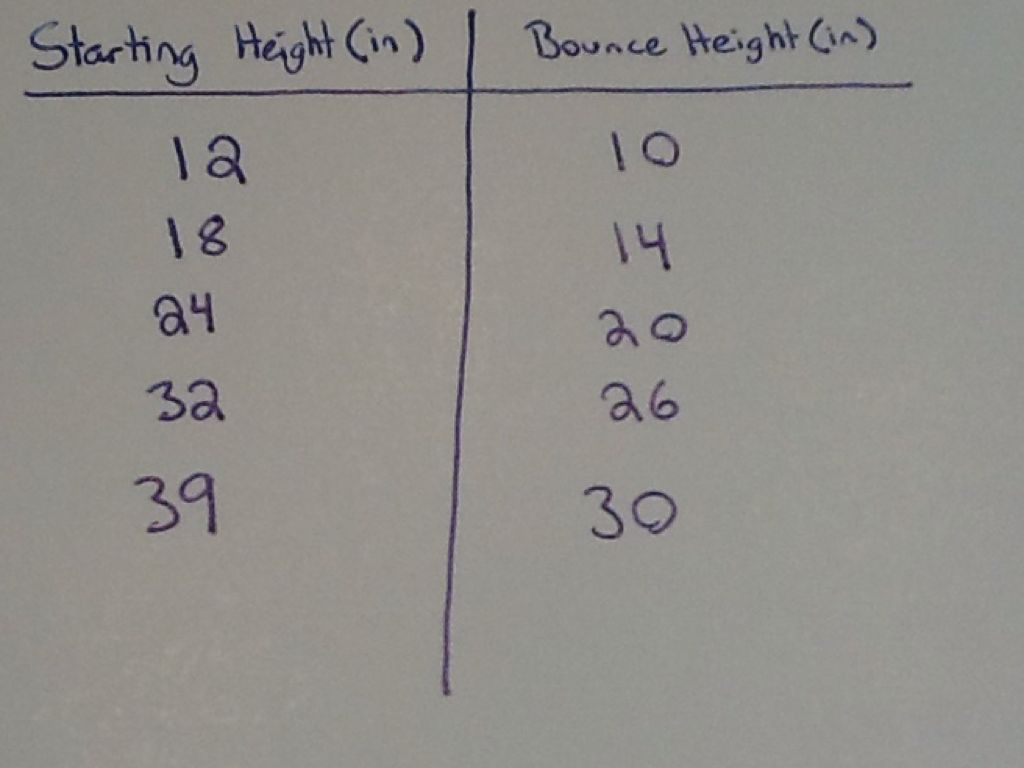 Starting Height (in) Bounce Height (in)
12 10
18 14
24 20
32 26
39 30